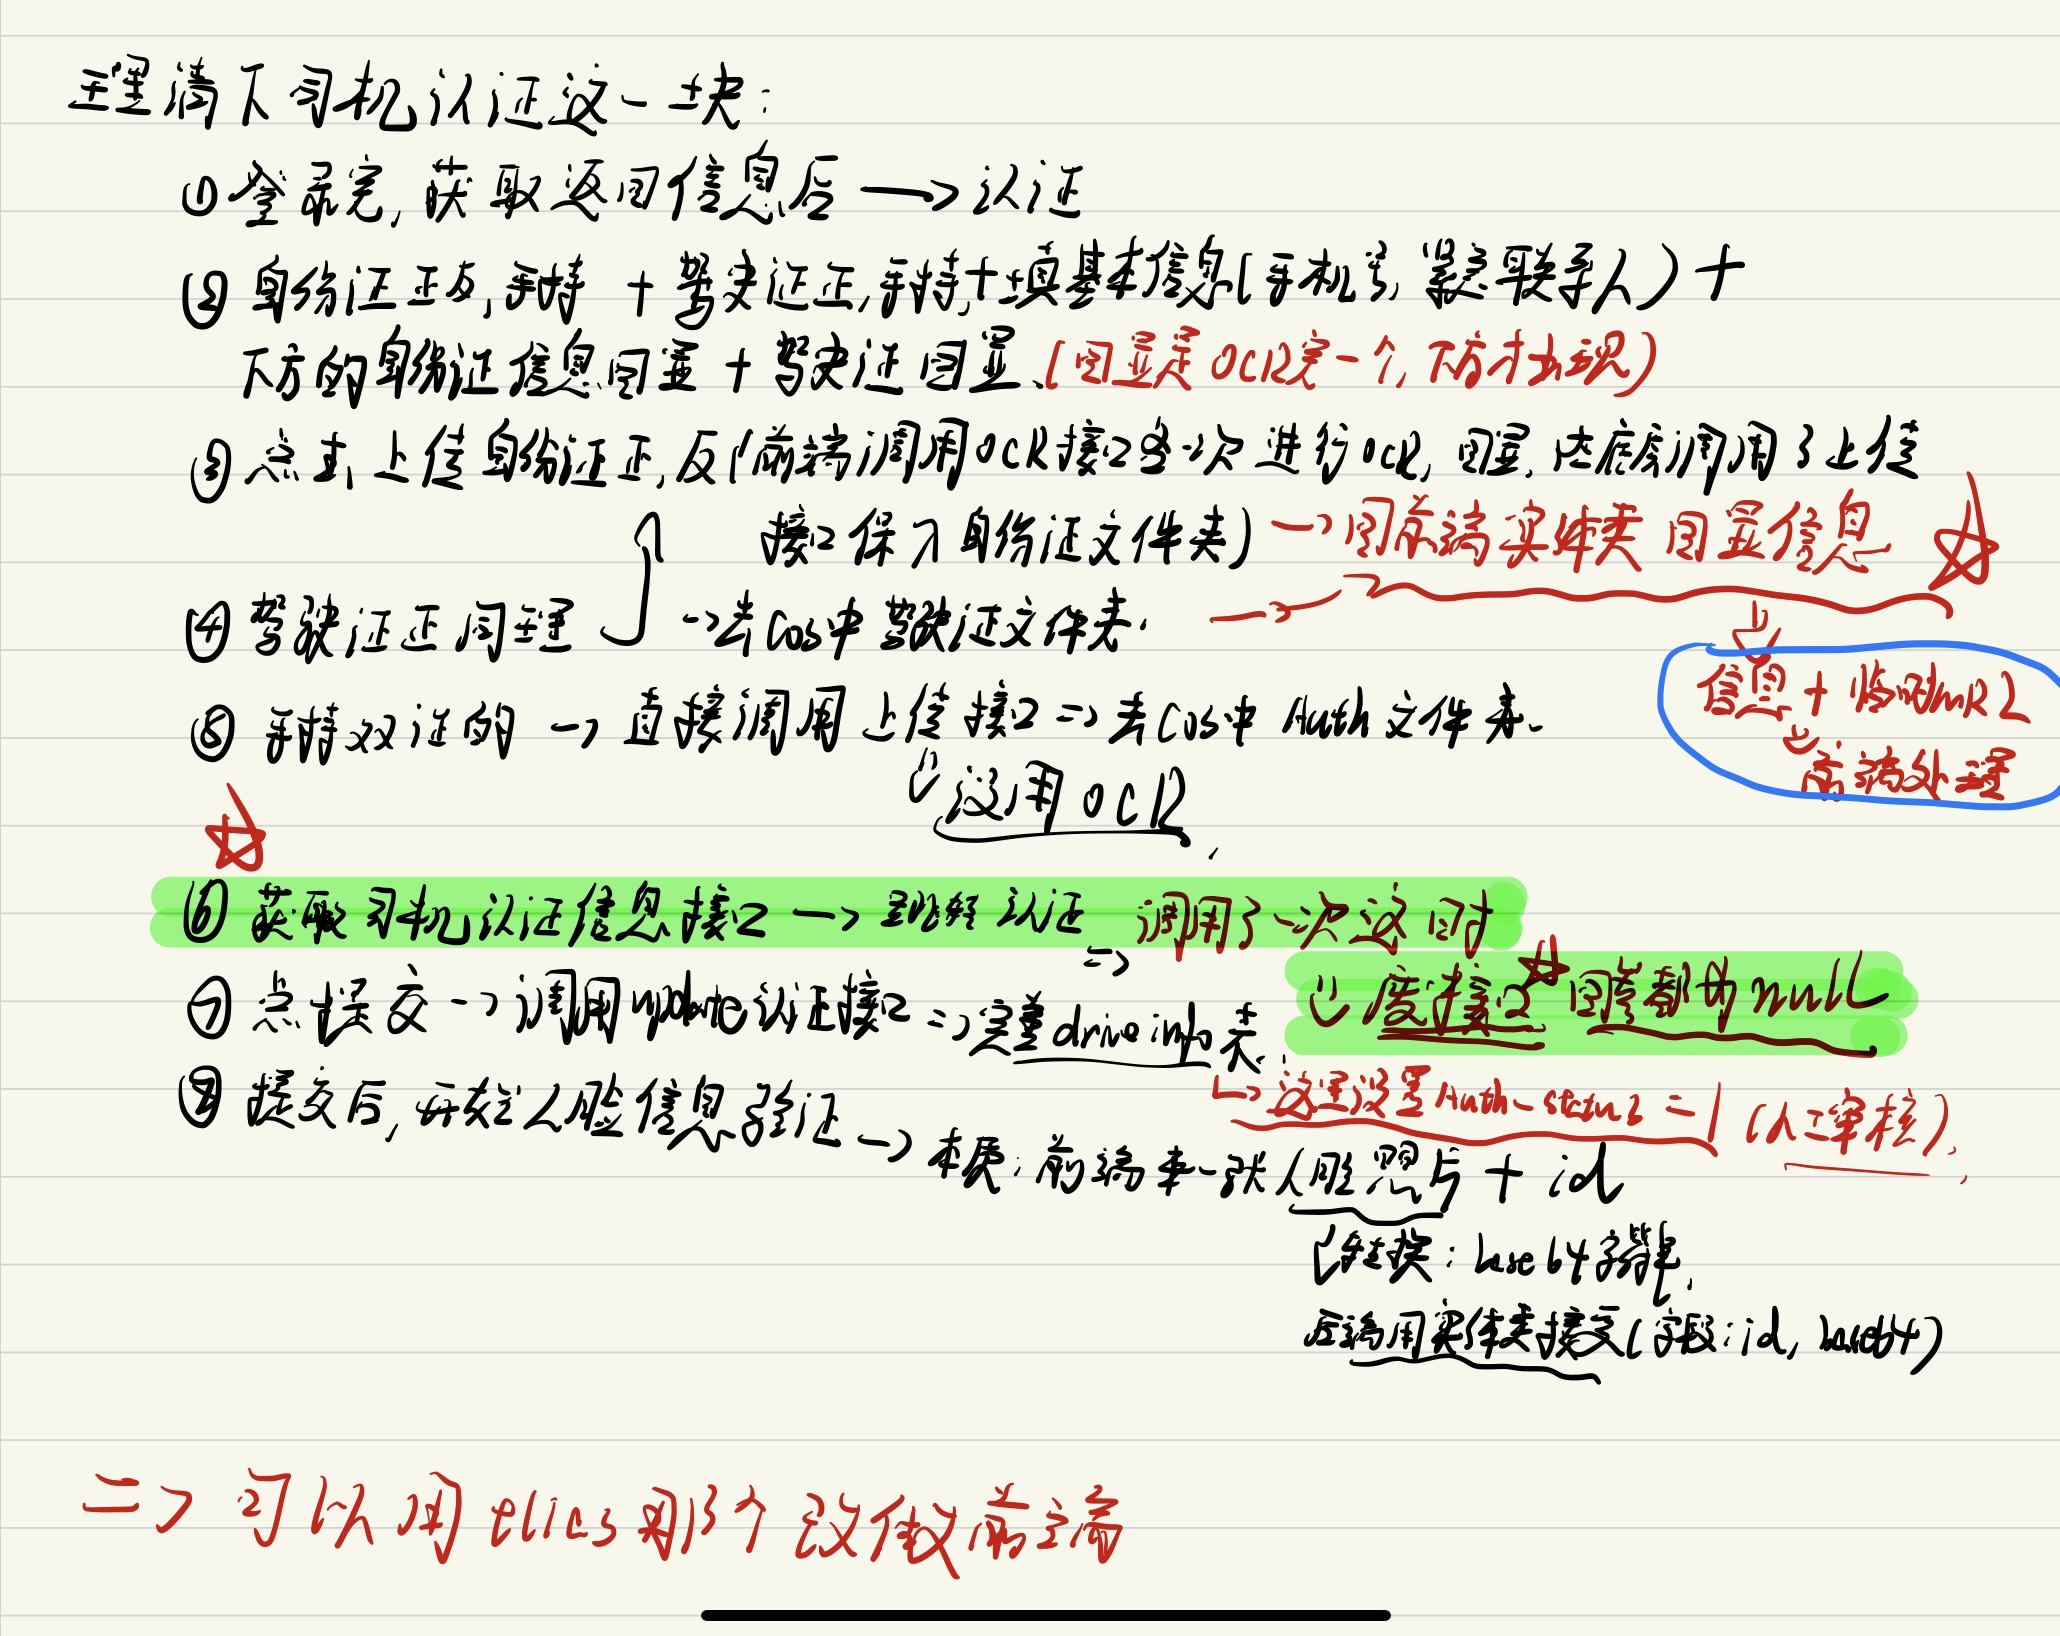 理清下司机认证这一块：
① 登录完, 获取返回信息后 → 认证
② 身份证正反, 手持 + 驾驶证正, 手持, + 填基本信息(手机号, 紧急联系人) +
下方的身份证信息回显 + 驾驶证回显. (回显是OCR完一个, 下方才出现)
③ 点击上传身份证正, 反(前端调用OCR接口 次进行OCR, 回显, 底层调用了上传
接口保入身份证文件夹) → 回前端实体类 回显信息
④ 驾驶证正同理 → 去Cos中驾驶证文件夹.
信息 + 临时
⑤ 手持双证的 → 直接调用上传接口 => 去Cos中Auth文件夹.
前端处理
没用OCR
⑥ 获取司机认证信息接口 → 认证 => 调用了一次 这时
接口 回 都为null
⑦ 点提交 → 调用update认证接口 => 完善driveinfo表.
↳ 这里设置Auth-status = 1 (人工审核).
⑦ 提交后, 开始人脸信息验证 → 本质: 前端来一张人脸照片 + id
转换: base64字符串.
后端用实体类接受(字段: id, base64)
=> 可以用 那个改做前端